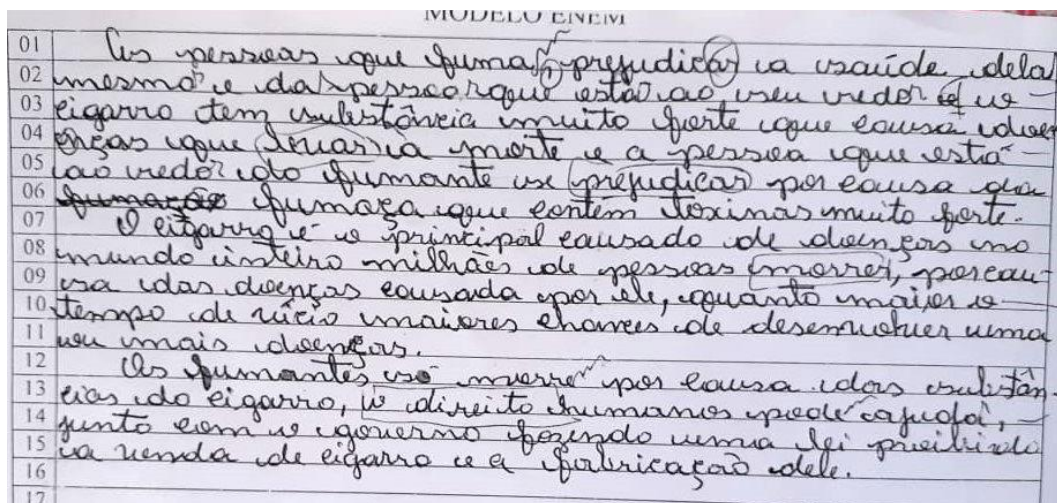 MODELO ENEM
01 As pessoas que fuma prejudica a saúde dela
02 mesmo e das pessoas que está ao seu redor o
03 cigarro tem substância muito forte que causa doe
04 enças que levar a morte e a pessoa que está
05 ao redor do fumante se prejudicar por causa da
06 fumaça que contém toxinas muito forte.
07 O cigarro é o principal causado de doenças no
08 mundo inteiro milhões de pessoas morrer, por cau-
09 sa das doenças causada por ele, quanto maior o
10 tempo de vício maiores chances de desenvolver uma
11 ou mais doenças.
12 Os fumantes só morre por causa das substân
13 cias do cigarro, o direito humanos pode ajudar,
14 junto com o governo fazendo uma lei proibindo
15 a venda de cigarro e a fabricação dele.
16
17